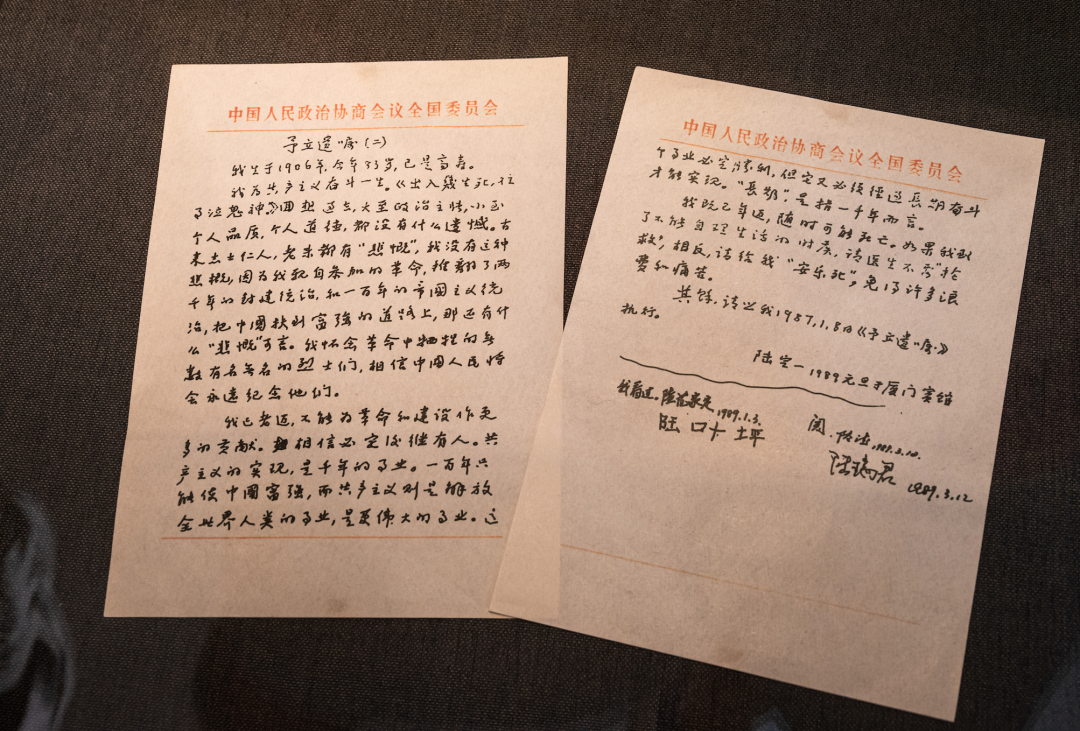 中国人民政治协商会议全国委员会
予立遗嘱(二)
我生于1906年,今年83岁,已是高寿。
我为共产主义奋斗一生。《出入几生死,往
事泣鬼神》。回想过去,大至政治立场,小至
个人品质,个人道德,都没有什么遗憾。古
来志士仁人,老来都有“悲慨”,我没有这种
悲慨,因为我亲自参加的革命,推翻了两
千年的封建统治,和一百年的帝國主义统
治,把中國扶到富强的道路上,那还有什
么“悲慨”可言。我怀念革命中牺牲的无
数有名无名的烈士们,相信中國人民将
会永远纪念他们。
我已老迈,不能为革命和建设作更
多的贡献。相信必定后继有人。共
产主义的实现,是千年的事业。一百年只
能使中國富强,而共产主义则是解放
全世界人类的事业,是更伟大的事业。这
中国人民政治协商会议全国委员会
个事业必定勝利,但定又必须经过長期奋斗
才能实现。“長期”,是指一千年而言。
我既已年迈,随时可能死亡。如果我到
了不能自理生活的时候,请医生不要“抢
救”,相反,请给我“安乐死”,免得许多浪
费和痛苦。
其馀,请照我1987.1.8日《予立遗嘱》
执行。
陆定一1989元旦于厦门宾馆
我看过。陆 1989.1.3.
阅. 1989.3.10.
陆瑞君 1989.3.12